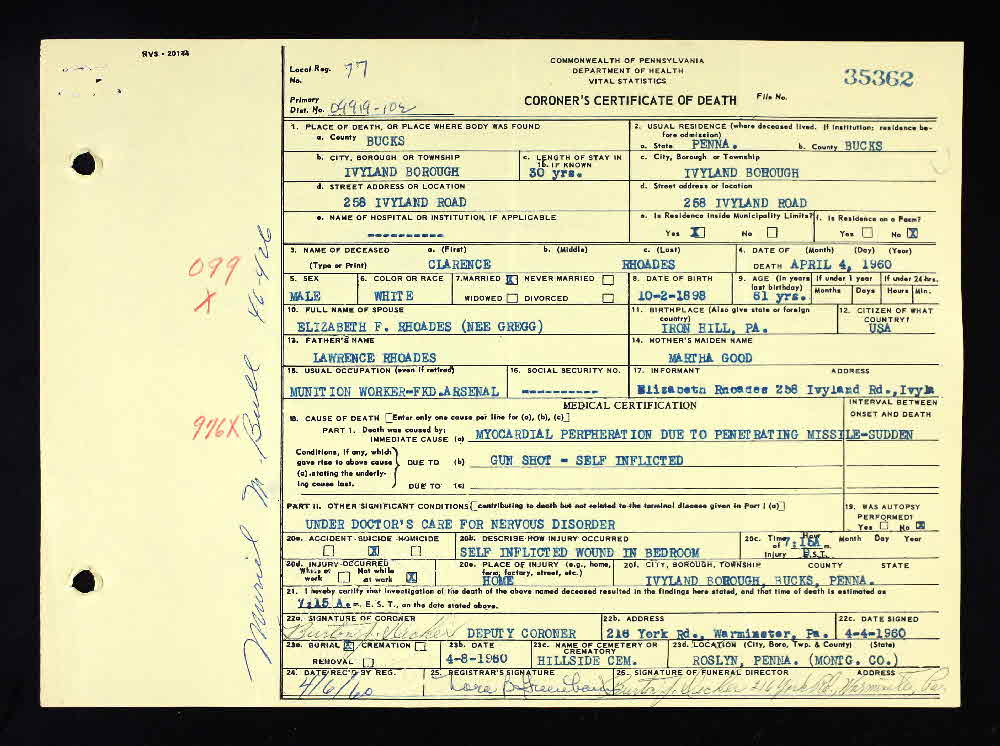 RVS - 20134
Local Reg. No. 77
COMMONWEALTH OF PENNSYLVANIA
DEPARTMENT OF HEALTH
VITAL STATISTICS
35362
Primary Dist. No. 09919-102
CORONER'S CERTIFICATE OF DEATH
File No.
1. PLACE OF DEATH, OR PLACE WHERE BODY WAS FOUND
a. County BUCKS
2. USUAL RESIDENCE (where deceased lived. If institution: residence before admission)
a. State PENNA. b. County BUCKS
b. CITY, BOROUGH OR TOWNSHIP
IVYLAND BOROUGH
c. LENGTH OF STAY IN 1b. IF KNOWN
30 yrs.
c. City, Borough or Township
IVYLAND BOROUGH
d. STREET ADDRESS OR LOCATION
258 IVYLAND ROAD
d. Street address or location
258 IVYLAND ROAD
e. NAME OF HOSPITAL OR INSTITUTION, IF APPLICABLE
----------
e. Is Residence Inside Municipality Limits?
Yes X No
f. Is Residence on a Farm?
Yes No X
3. NAME OF DECEASED a. (First) b. (Middle) c. (Last)
(Type or Print) CLARENCE RHOADES
4. DATE OF (Month) (Day) (Year)
DEATH APRIL 4, 1960
5. SEX
MALE
6. COLOR OR RACE
WHITE
7. MARRIED X NEVER MARRIED
WIDOWED DIVORCED
8. DATE OF BIRTH
10-2-1898
9. AGE (in years last birthday)
61 yrs.
If under 1 year
Months Days
If under 24 hrs.
Hours Min.
10. FULL NAME OF SPOUSE
ELIZABETH F. RHOADES (NEE GREGG)
11. BIRTHPLACE (Also give state or foreign country)
IRON HILL, PA.
12. CITIZEN OF WHAT COUNTRY?
USA
13. FATHER'S NAME
LAWRENCE RHOADES
14. MOTHER'S MAIDEN NAME
MARTHA GOOD
15. USUAL OCCUPATION (even if retired)
MUNITION WORKER-FKD.ARSENAL
16. SOCIAL SECURITY NO.
----------
17. INFORMANT ADDRESS
Elizabeth Rhoades 258 Ivyland Rd.,Ivyla
MEDICAL CERTIFICATION
INTERVAL BETWEEN ONSET AND DEATH
18. CAUSE OF DEATH [Enter only one cause per line for (a), (b), (c)]
PART 1. Death was caused by:
IMMEDIATE CAUSE (a) MYOCARDIAL PERPHERATION DUE TO PENETRATING MISSILE-SUDDEN
Conditions, if any, which gave rise to above cause (a), stating the underlying cause last.
DUE TO (b) GUN SHOT - SELF INFLICTED
DUE TO (c)
PART II. OTHER SIGNIFICANT CONDITIONS [contributing to death but not related to the terminal disease given in Part I (a)]
UNDER DOCTOR'S CARE FOR NERVOUS DISORDER
19. WAS AUTOPSY PERFORMED?
Yes No X
20a. ACCIDENT SUICIDE HOMICIDE
X
20b. DESCRIBE HOW INJURY OCCURRED
SELF INFLICTED WOUND IN BEDROOM
20c. Time of Injury Hour Month Day Year
7:15A m. E.S.T.
20d. INJURY OCCURRED
While at work Not while at work X
20e. PLACE OF INJURY (e.g., home, farm, factory, street, etc.)
HOME
20f. CITY, BOROUGH, TOWNSHIP COUNTY STATE
IVYLAND BOROUGH, BUCKS, PENNA.
21. I hereby certify that investigation of the death of the above named deceased resulted in the findings here stated, and that time of death is estimated as
7:15 A. m. E. S. T., on the date stated above.
22a. SIGNATURE OF CORONER
DEPUTY CORONER
22b. ADDRESS
216 York Rd., Warminster, Pa.
22c. DATE SIGNED
4-4-1960
23a. BURIAL X CREMATION
REMOVAL
23b. DATE
4-8-1960
23c. NAME OF CEMETERY OR CREMATORY
HILLSIDE CEM.
23d. LOCATION (City, Boro, Twp. & County) (State)
ROSLYN, PENNA. (MONTG. CO.)
24. DATE REC'D BY REG.
4/6/60
25. REGISTRAR'S SIGNATURE
26. SIGNATURE OF FUNERAL DIRECTOR ADDRESS
216 York Rd., Warminster, Pa.
099
X
976X
Muriel M. Buell 46-426